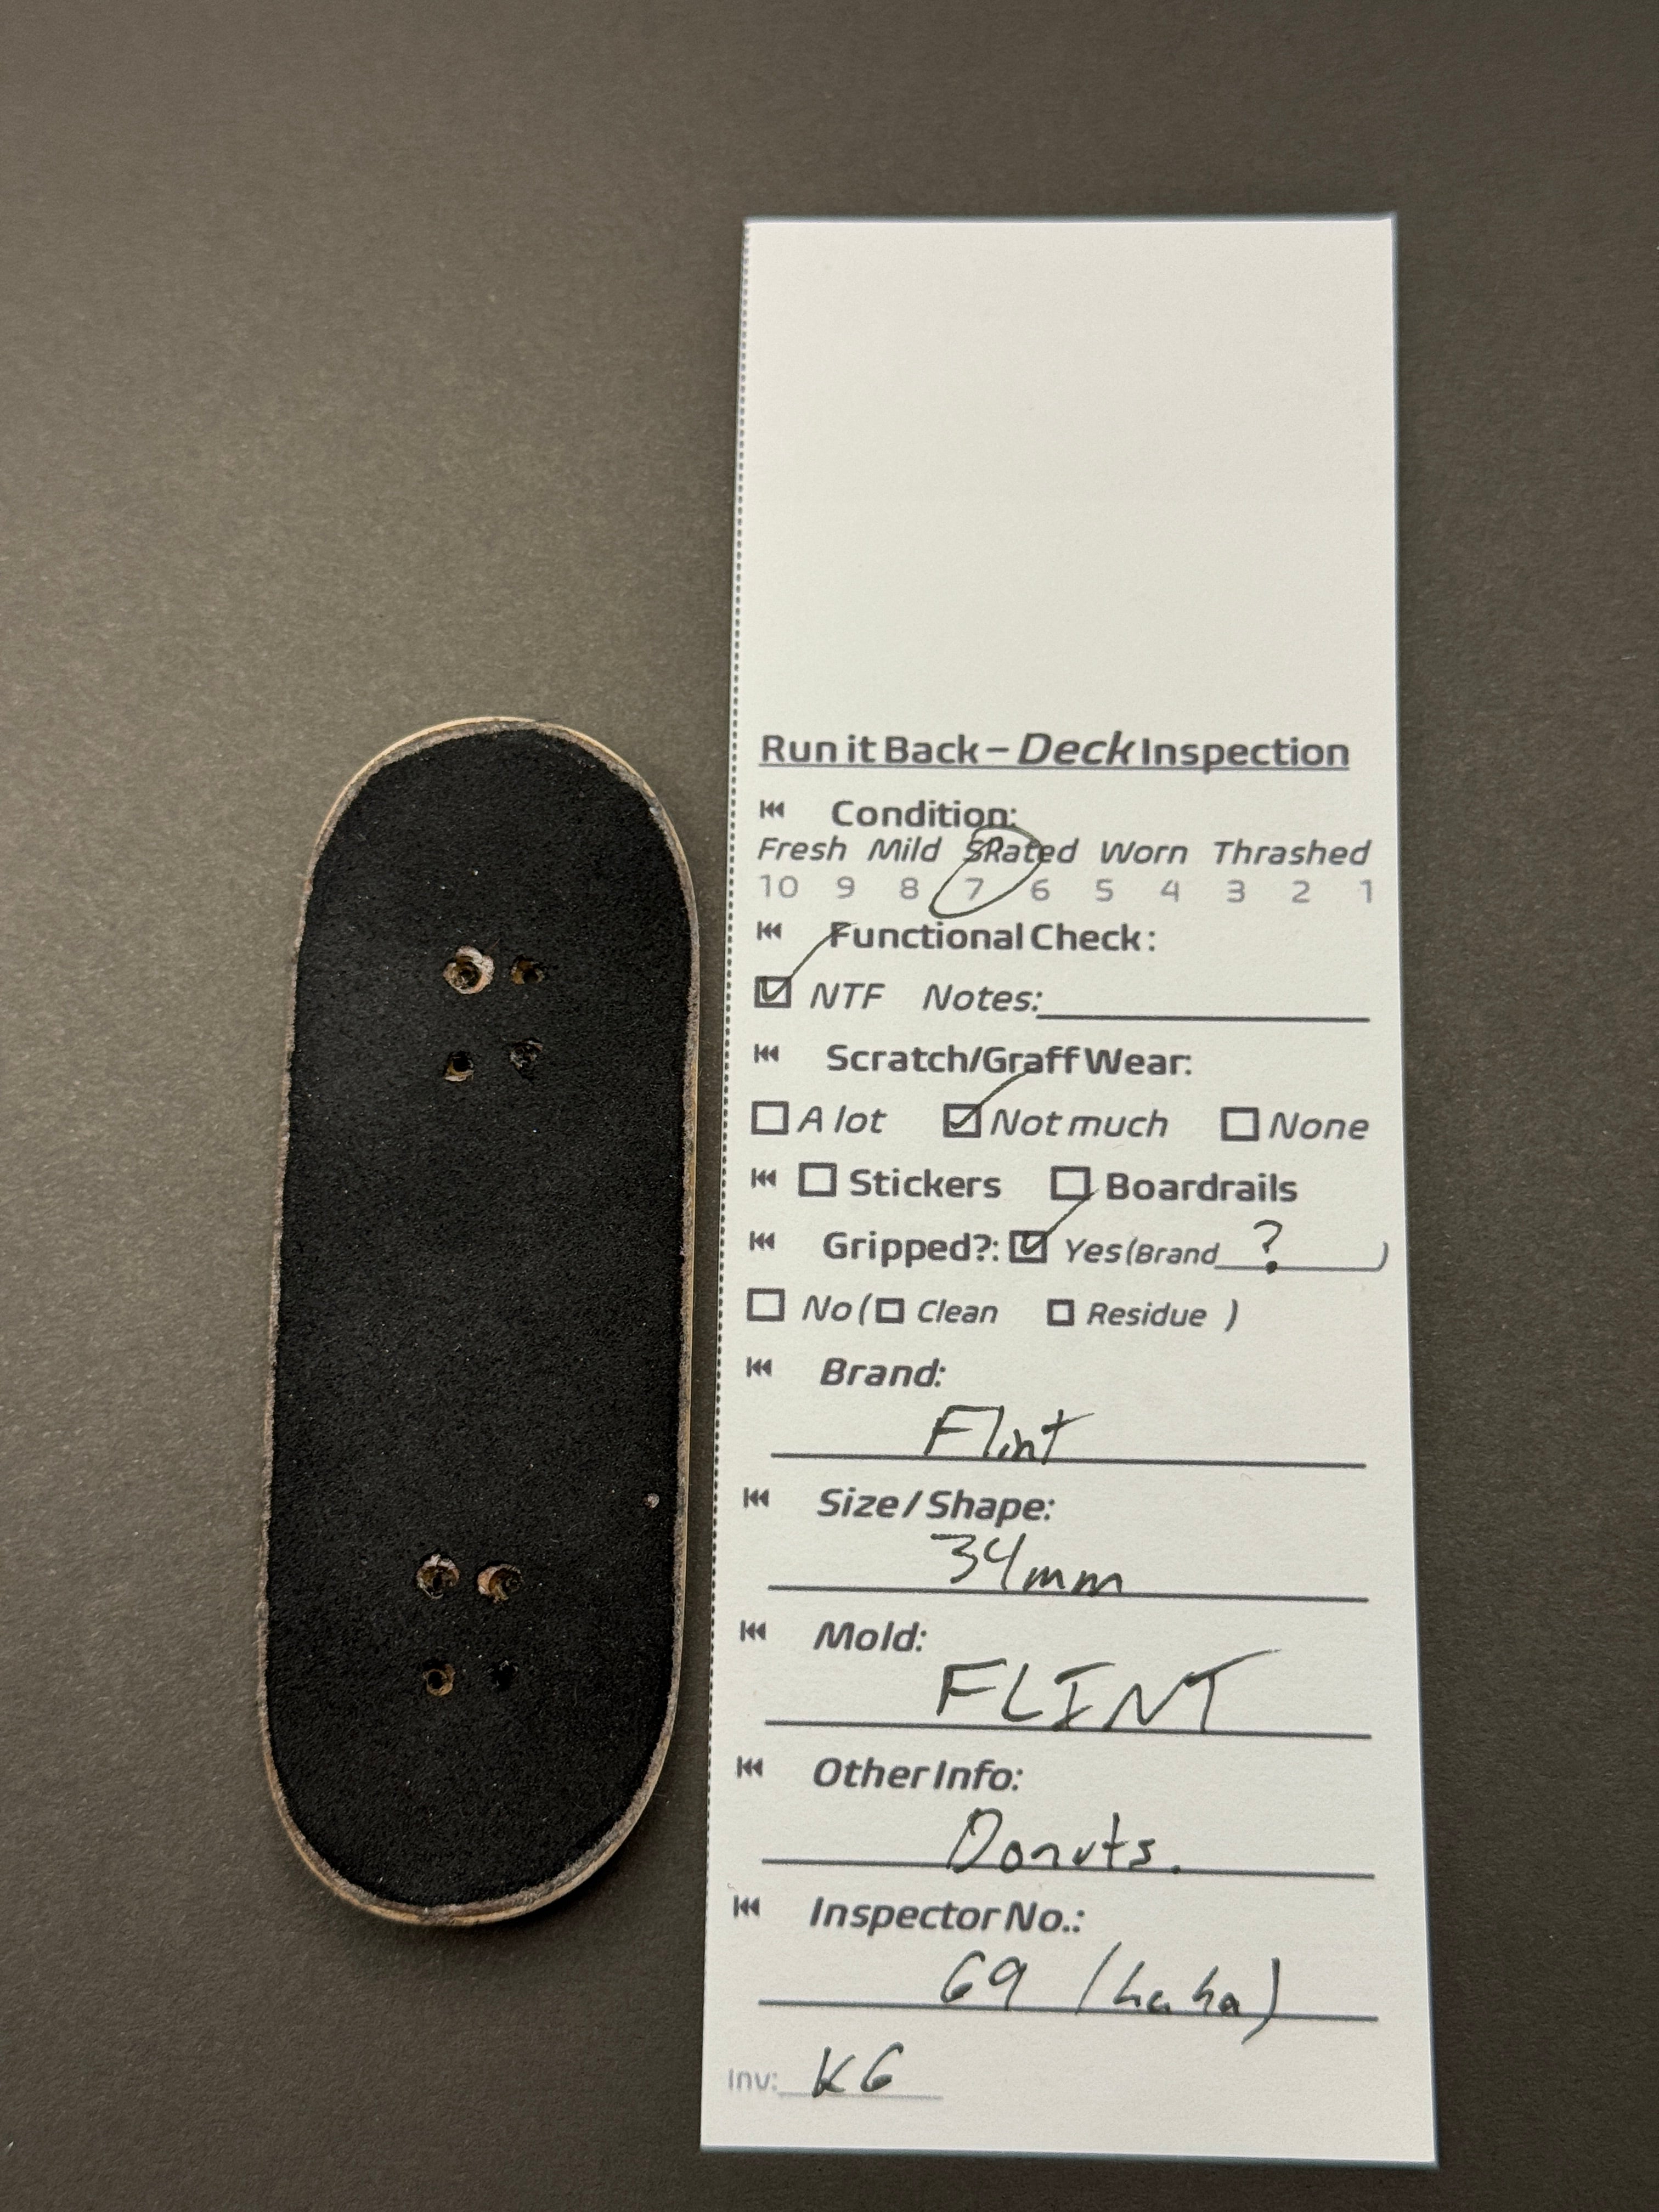 Run it Back – Deck Inspection
Condition:
Fresh Mild SRated Worn Thrashed
10 9 8 7 6 5 4 3 2 1
Functional Check:
NTF Notes:
Scratch/Graff Wear:
A lot Not much None
Stickers Boardrails
Gripped?: Yes (Brand ? )
No ( Clean Residue )
Brand:
Flint
Size / Shape:
34mm
Mold:
FLINT
Other Info:
Donuts.
Inspector No.:
69 (haha)
Inv: K6